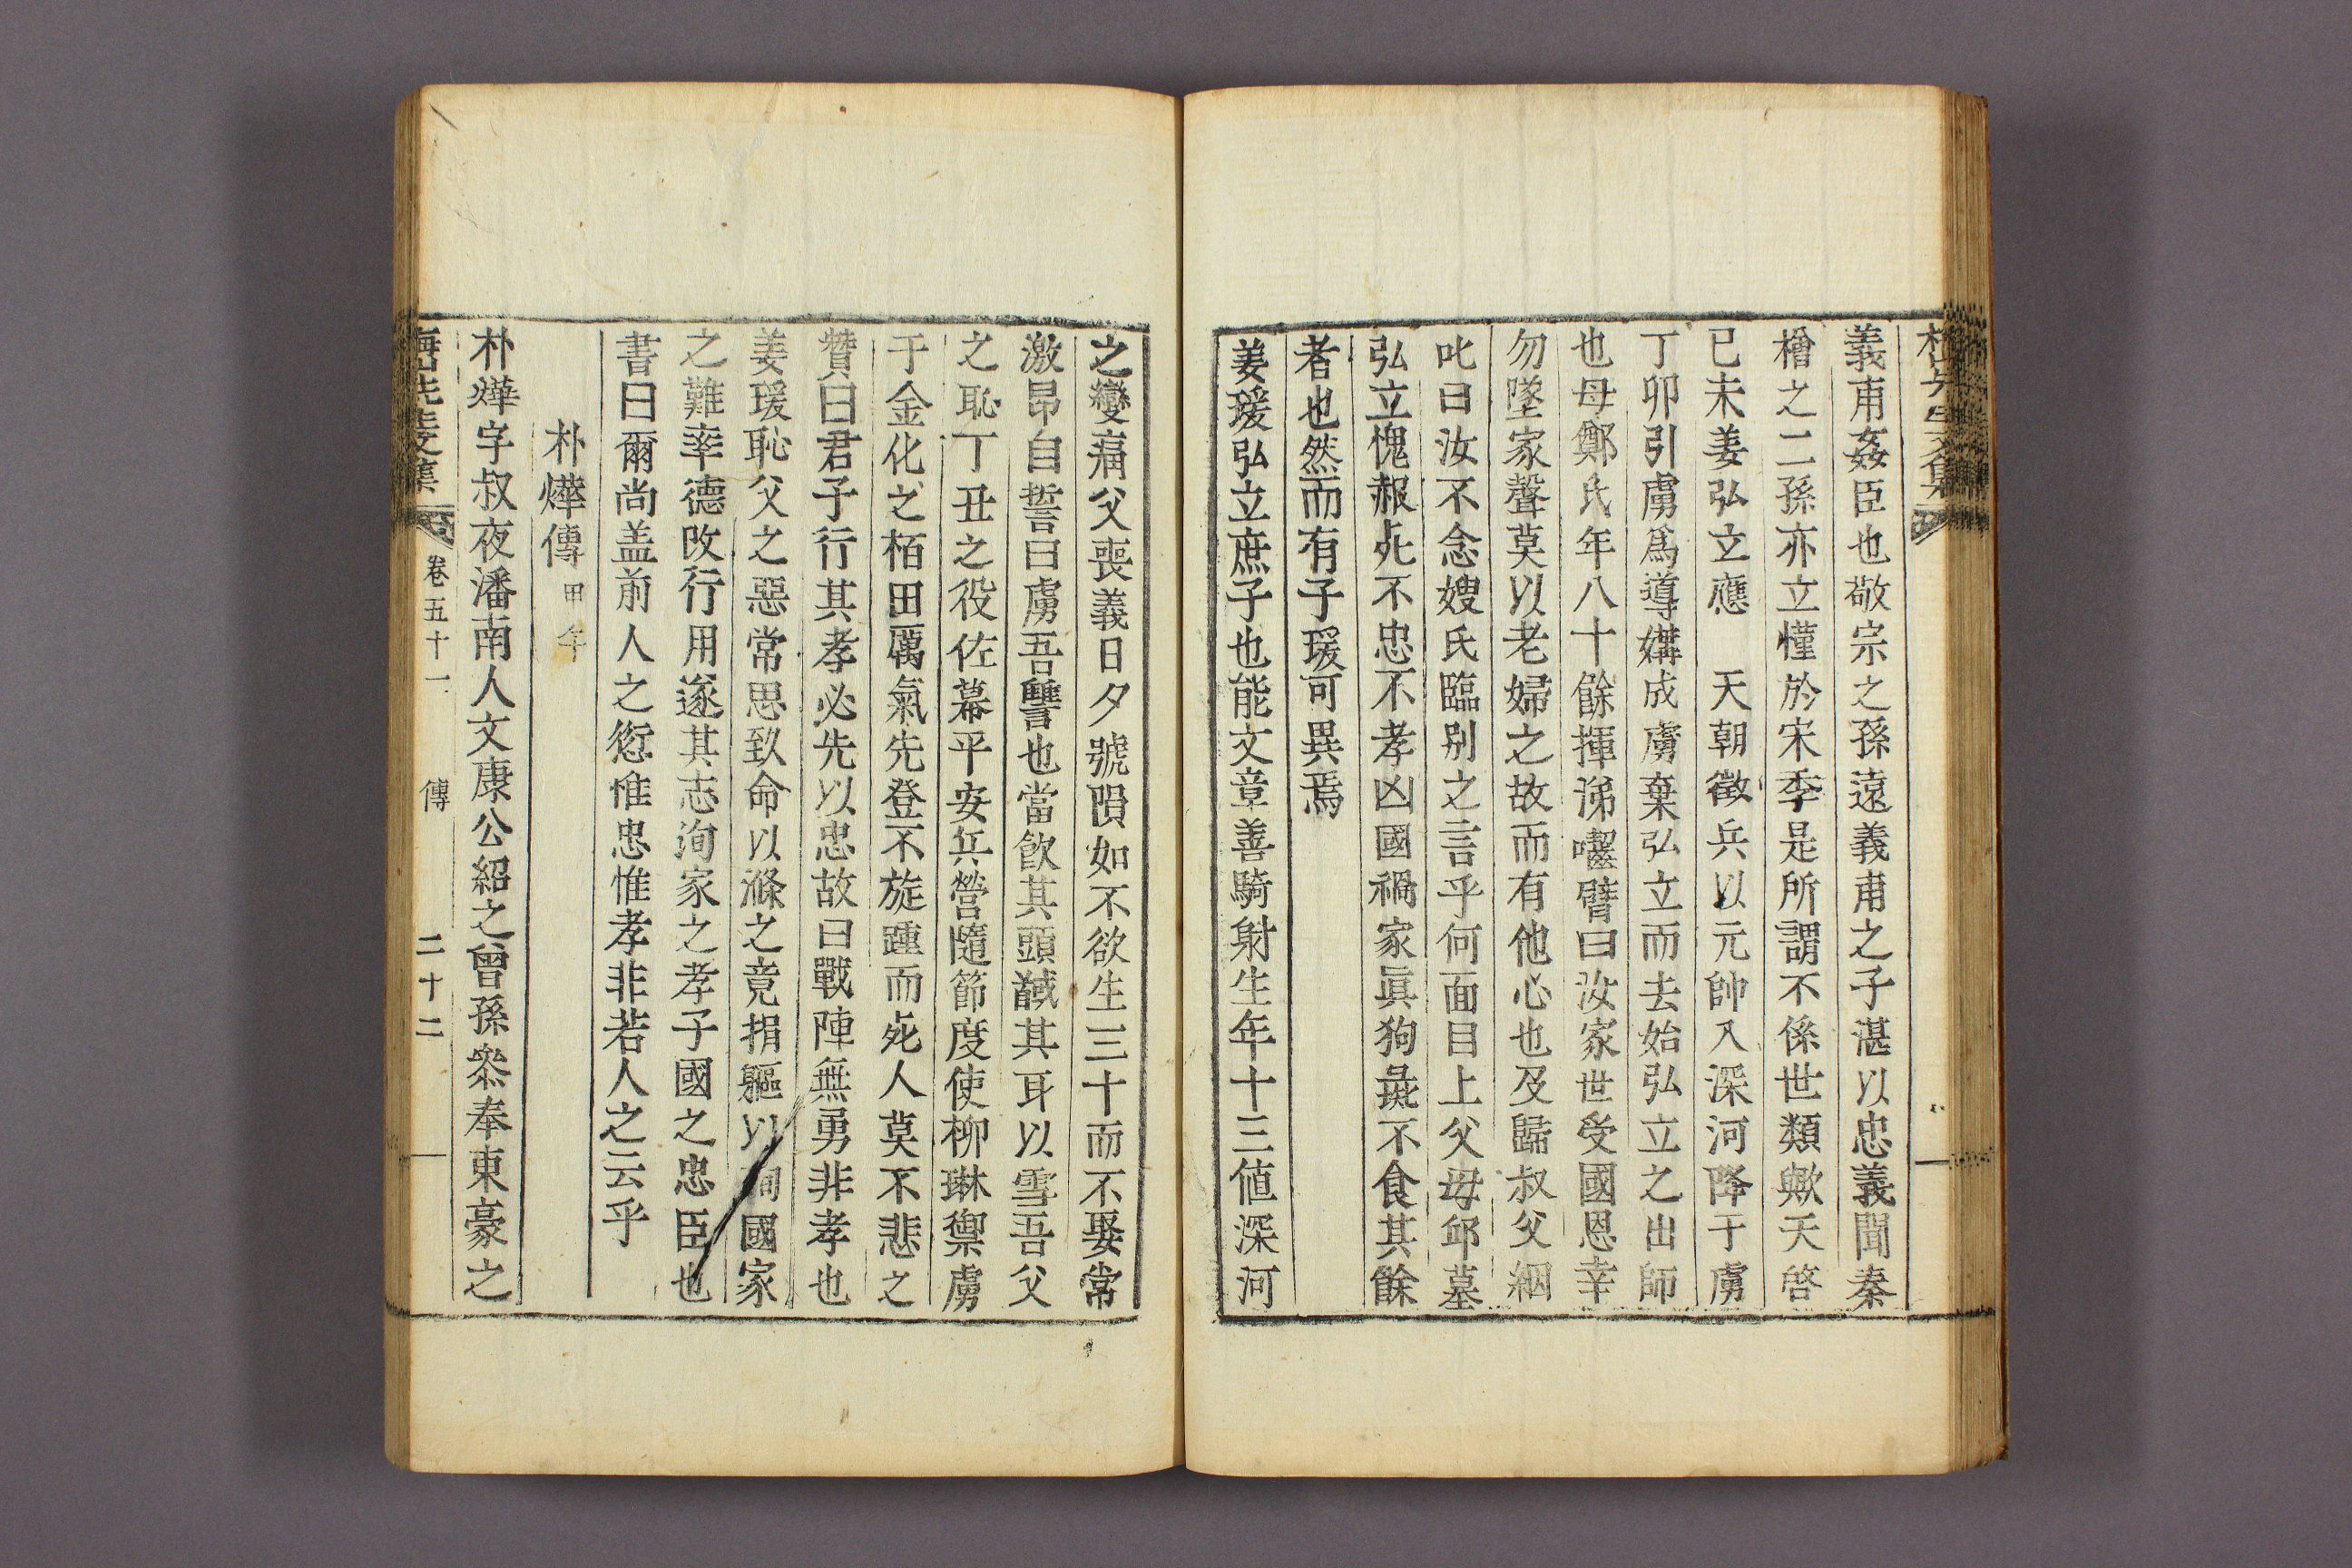 義甫姦臣也敬宗之孫遠義甫之子湛以忠義聞秦
檜之二孫亦立慬於宋季是所謂不係世類歟天啓
已未姜弘立應　天朝徵兵以元帥入深河降于虜
丁卯引虜爲導媾成虜棄弘立而去始弘立之出師
也母鄭氏年八十餘揮涕囓臂曰汝家世受國恩幸
勿墜家聲莫以老婦之故而有他心也及歸叔父絪
叱曰汝不念嫂氏臨別之言乎何面目上父母邱墓
弘立愧赧死不忠不孝凶國禍家眞狗彘不食其餘
者也然而有子瑗可異焉
姜瑗弘立庶子也能文章善騎射生年十三値深河
之變痛父喪義日夕號隕如不欲生三十而不娶常
激昂自誓曰虜吾讐也當飮其頭馘其耳以雪吾父
之恥丁丑之役佐幕平安兵營隨節度使柳琳禦虜
于金化之栢田厲氣先登不旋踵而死人莫不悲之
贊曰君子行其孝必先以忠故曰戰陣無勇非孝也
姜瑗恥父之惡常思致命以滌之竟捐軀以徇國家
之難幸德改行用遂其志洵家之孝子國之忠臣也
書曰爾尚盖前人之愆惟忠惟孝非若人之云乎
朴燁傳甲午
朴燁字叔夜潘南人文康公紹之曾孫叅奉東豪之
先生文集　卷五十一　傳　二十二